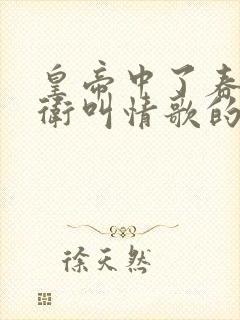 皇帝中了春
衛叫情歌的
徐天然